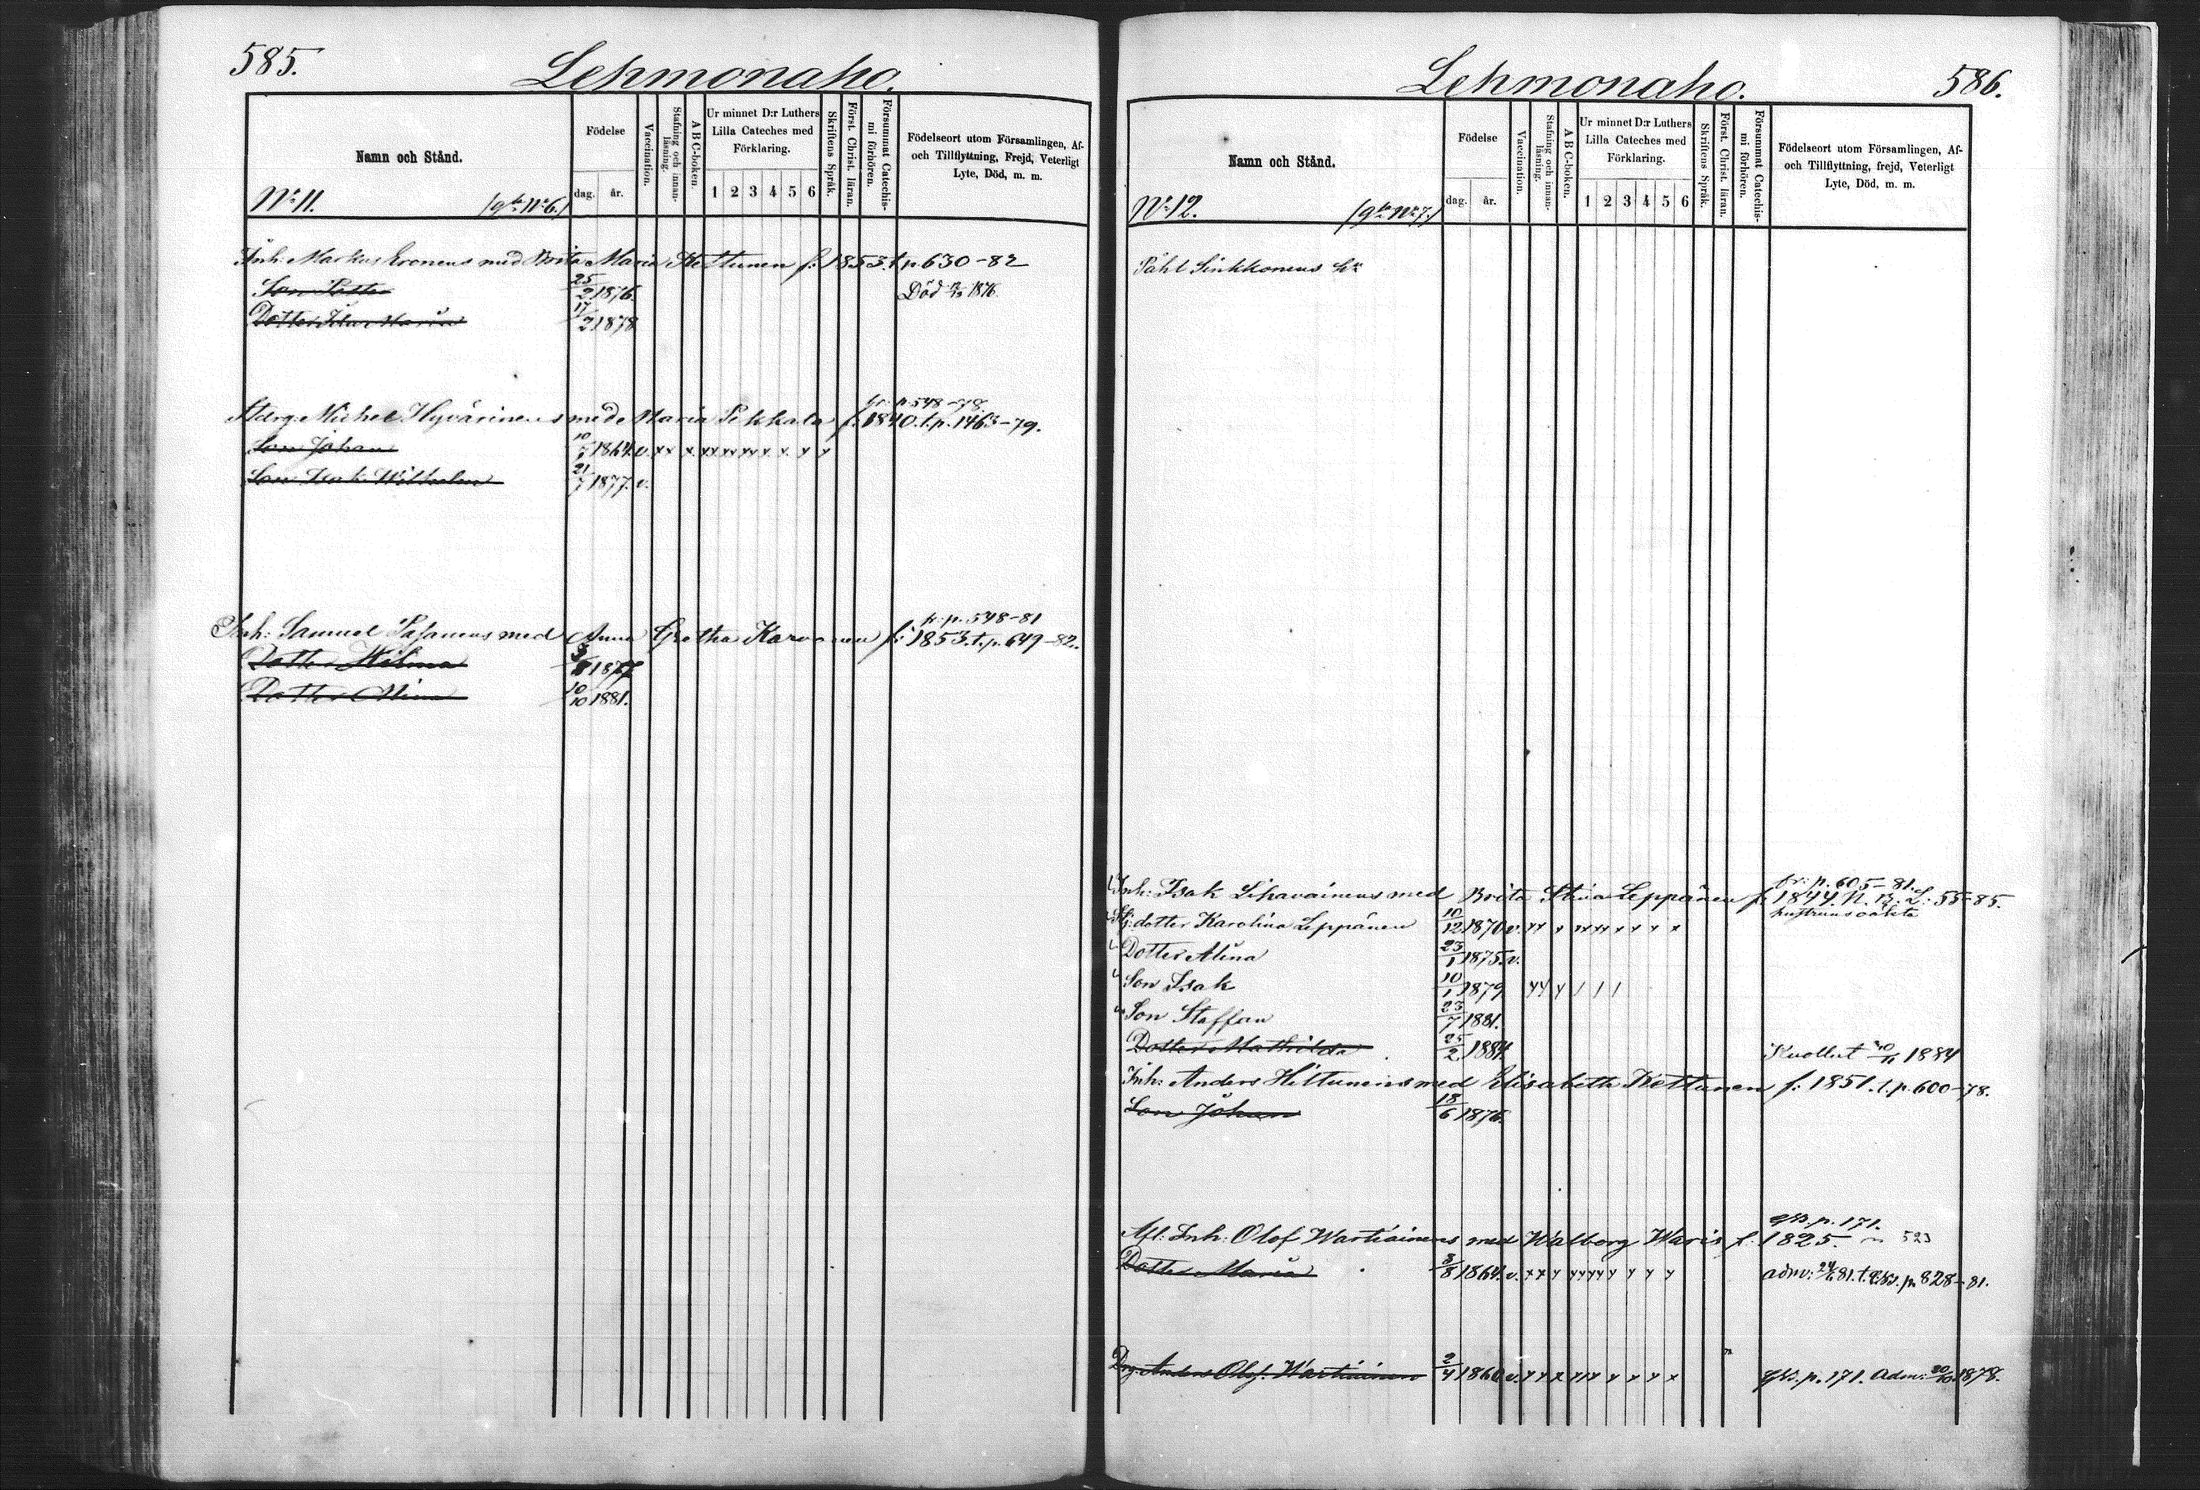 585.
Lehmonaho.
Namn och Stånd.
Födelse
dag. år.
Vaccination.
Stafning och innanläsning.
A B C-boken.
Ur minnet D:r Luthers
Lilla Cateches med
Förklaring.
1 2 3 4 5 6
Skriftens Språk.
Först. Christ. läran.
Försummat Catechismi förhören.
Födelseort utom Församlingen, Af-
och Tillflyttning, Frejd, Veterligt
Lyte, Död, m. m.
No 11. No 6.)
Inh: Markus med Brita Maria Kettunen f: 1853. t. p 630-82
Son Petter 25/2 1876. Död 1876.
Dotter Maria 17/2 1878
fr. p. 548-78
Michel Hyvärinens med Maria Pekkala f. 1840. t. p. 1463-79.
Son Johan 1864. v. x x x x x x x x x x x
Son Isak Wilhelm 21/7 1877. v.
fr. p. 548-81
Inh: Samuel med Anna Gretha Karvonen f: 1853. t. p. 649-82.
Dotter Hilma 1877
Dotter Alina 10/10 1881.
586.
Lehmonaho.
Namn och Stånd.
Födelse
dag. år.
Vaccination.
Stafning och innanläsning.
A B C-boken.
Ur minnet D:r Luthers
Lilla Cateches med
Förklaring.
1 2 3 4 5 6
Skriftens Språk.
Först. Christ. läran.
Försummat Catechismi förhören.
Födelseort utom Församlingen, Af-
och Tillflyttning, frejd, Veterligt
Lyte, Död, m. m.
No 12. No 7.)
Påhl Sinkkonens
fr: p. 605-81.
Inh: Isak med Brita Stina Leppänen f. 1844. N. B. L: 55-85.
dotter Karolina Leppänen 10/12 1870 v. x x x x x x x x x x x hustruns oäkta
Dotter Alina 23/1 1875. v.
Son Isak 10/1 1879 x x x / / /
Son Staffan 23/7 1881.
Dotter Mathilda 25/2 1884. 1884
Inh: Anders Hiltunens med Elisabeth Kettunen f: 1851. t. p. 600-78.
Son Johan 18/6 1876.
p. 171.
Afl. Inh: Olof Wartiainens med Walborg Waris f. 1825. 523
Dotter Maria 1864. v. x x x x x x x x x x x adm: 24/6 81. t. p. 828-81.
Drg Anders Olof. Wartiainen 2/4 1860 v. x x x x x x x x x x p. 171. Adm: 20/10 1878.